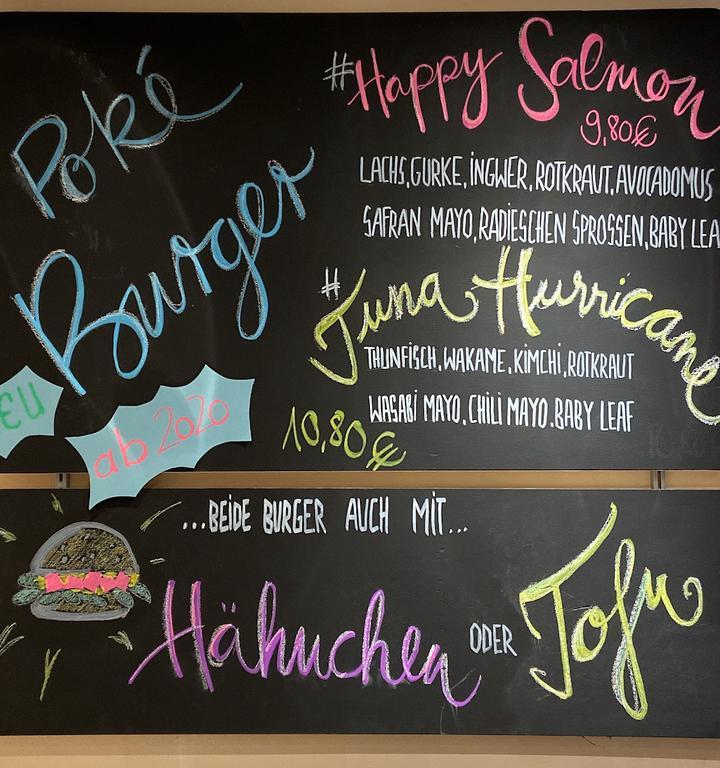 Poké
Burger
EU
ab 2020
#Happy Salmon
9,80€
LACHS, GURKE, INGWER, ROTKRAUT, AVOCADOMUS
SAFRAN MAYO, RADIESCHEN SPROSSEN, BABY LEA
#Tuna Hurricane
THUNFISCH, WAKAME, KIMCHI, ROTKRAUT
WASABI MAYO, CHILI MAYO. BABY LEAF
10,80€
...BEIDE BURGER AUCH MIT...
Hähnchen ODER Tofu